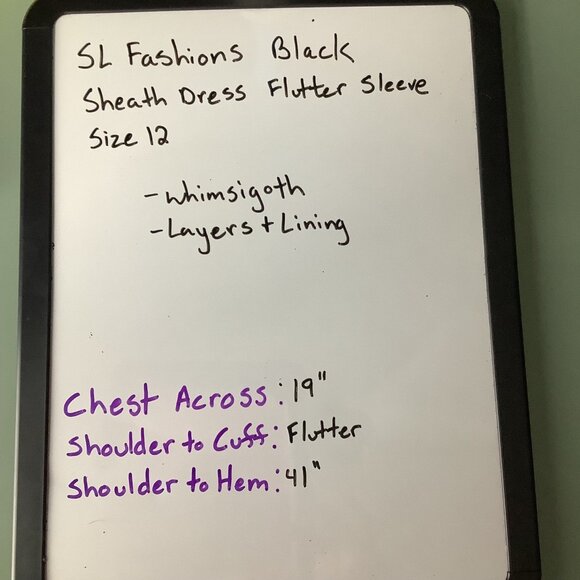 SL Fashions Black
Sheath Dress Flutter Sleeve
Size 12
- Whimsigoth
- Layers + Lining
Chest Across: 19"
Shoulder to Cuff: Flutter
Shoulder to Hem: 41"